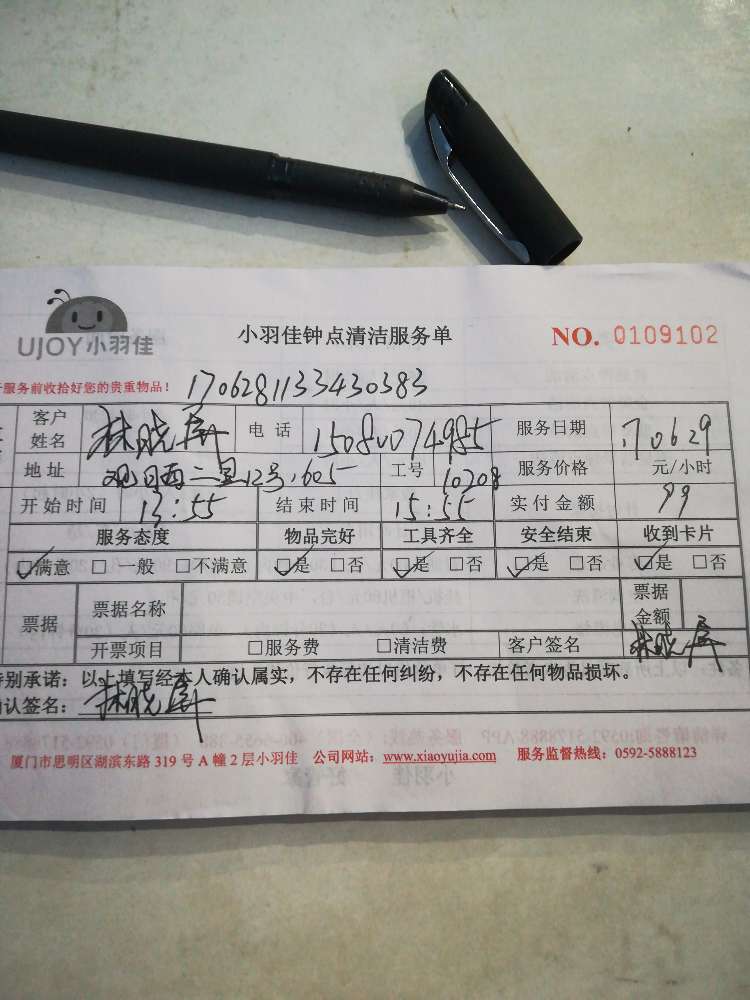 UJOY小羽佳
小羽佳钟点清洁服务单
NO. 0109102
服务前收拾好您的贵重物品！ 1706281133430383
客户姓名 林晓 电话 15080074985 服务日期 170629
地址 观日西二里12号,605 工号 10208 服务价格 元/小时
开始时间 13:55 结束时间 15:55 实付金额 99
服务态度 物品完好 工具齐全 安全结束 收到卡片
☑满意 □一般 □不满意 ☑是 □否 ☑是 □否 ☑是 □否 ☑是 □否
票据 票据名称 票据金额
开票项目 □服务费 □清洁费 客户签名 林晓
特别承诺：以上填写经本人确认属实，不存在任何纠纷，不存在任何物品损坏。
确认签名： 林晓
厦门市思明区湖滨东路 319 号 A 幢 2 层小羽佳 公司网站：www.xiaoyujia.com 服务监督热线：0592-5888123